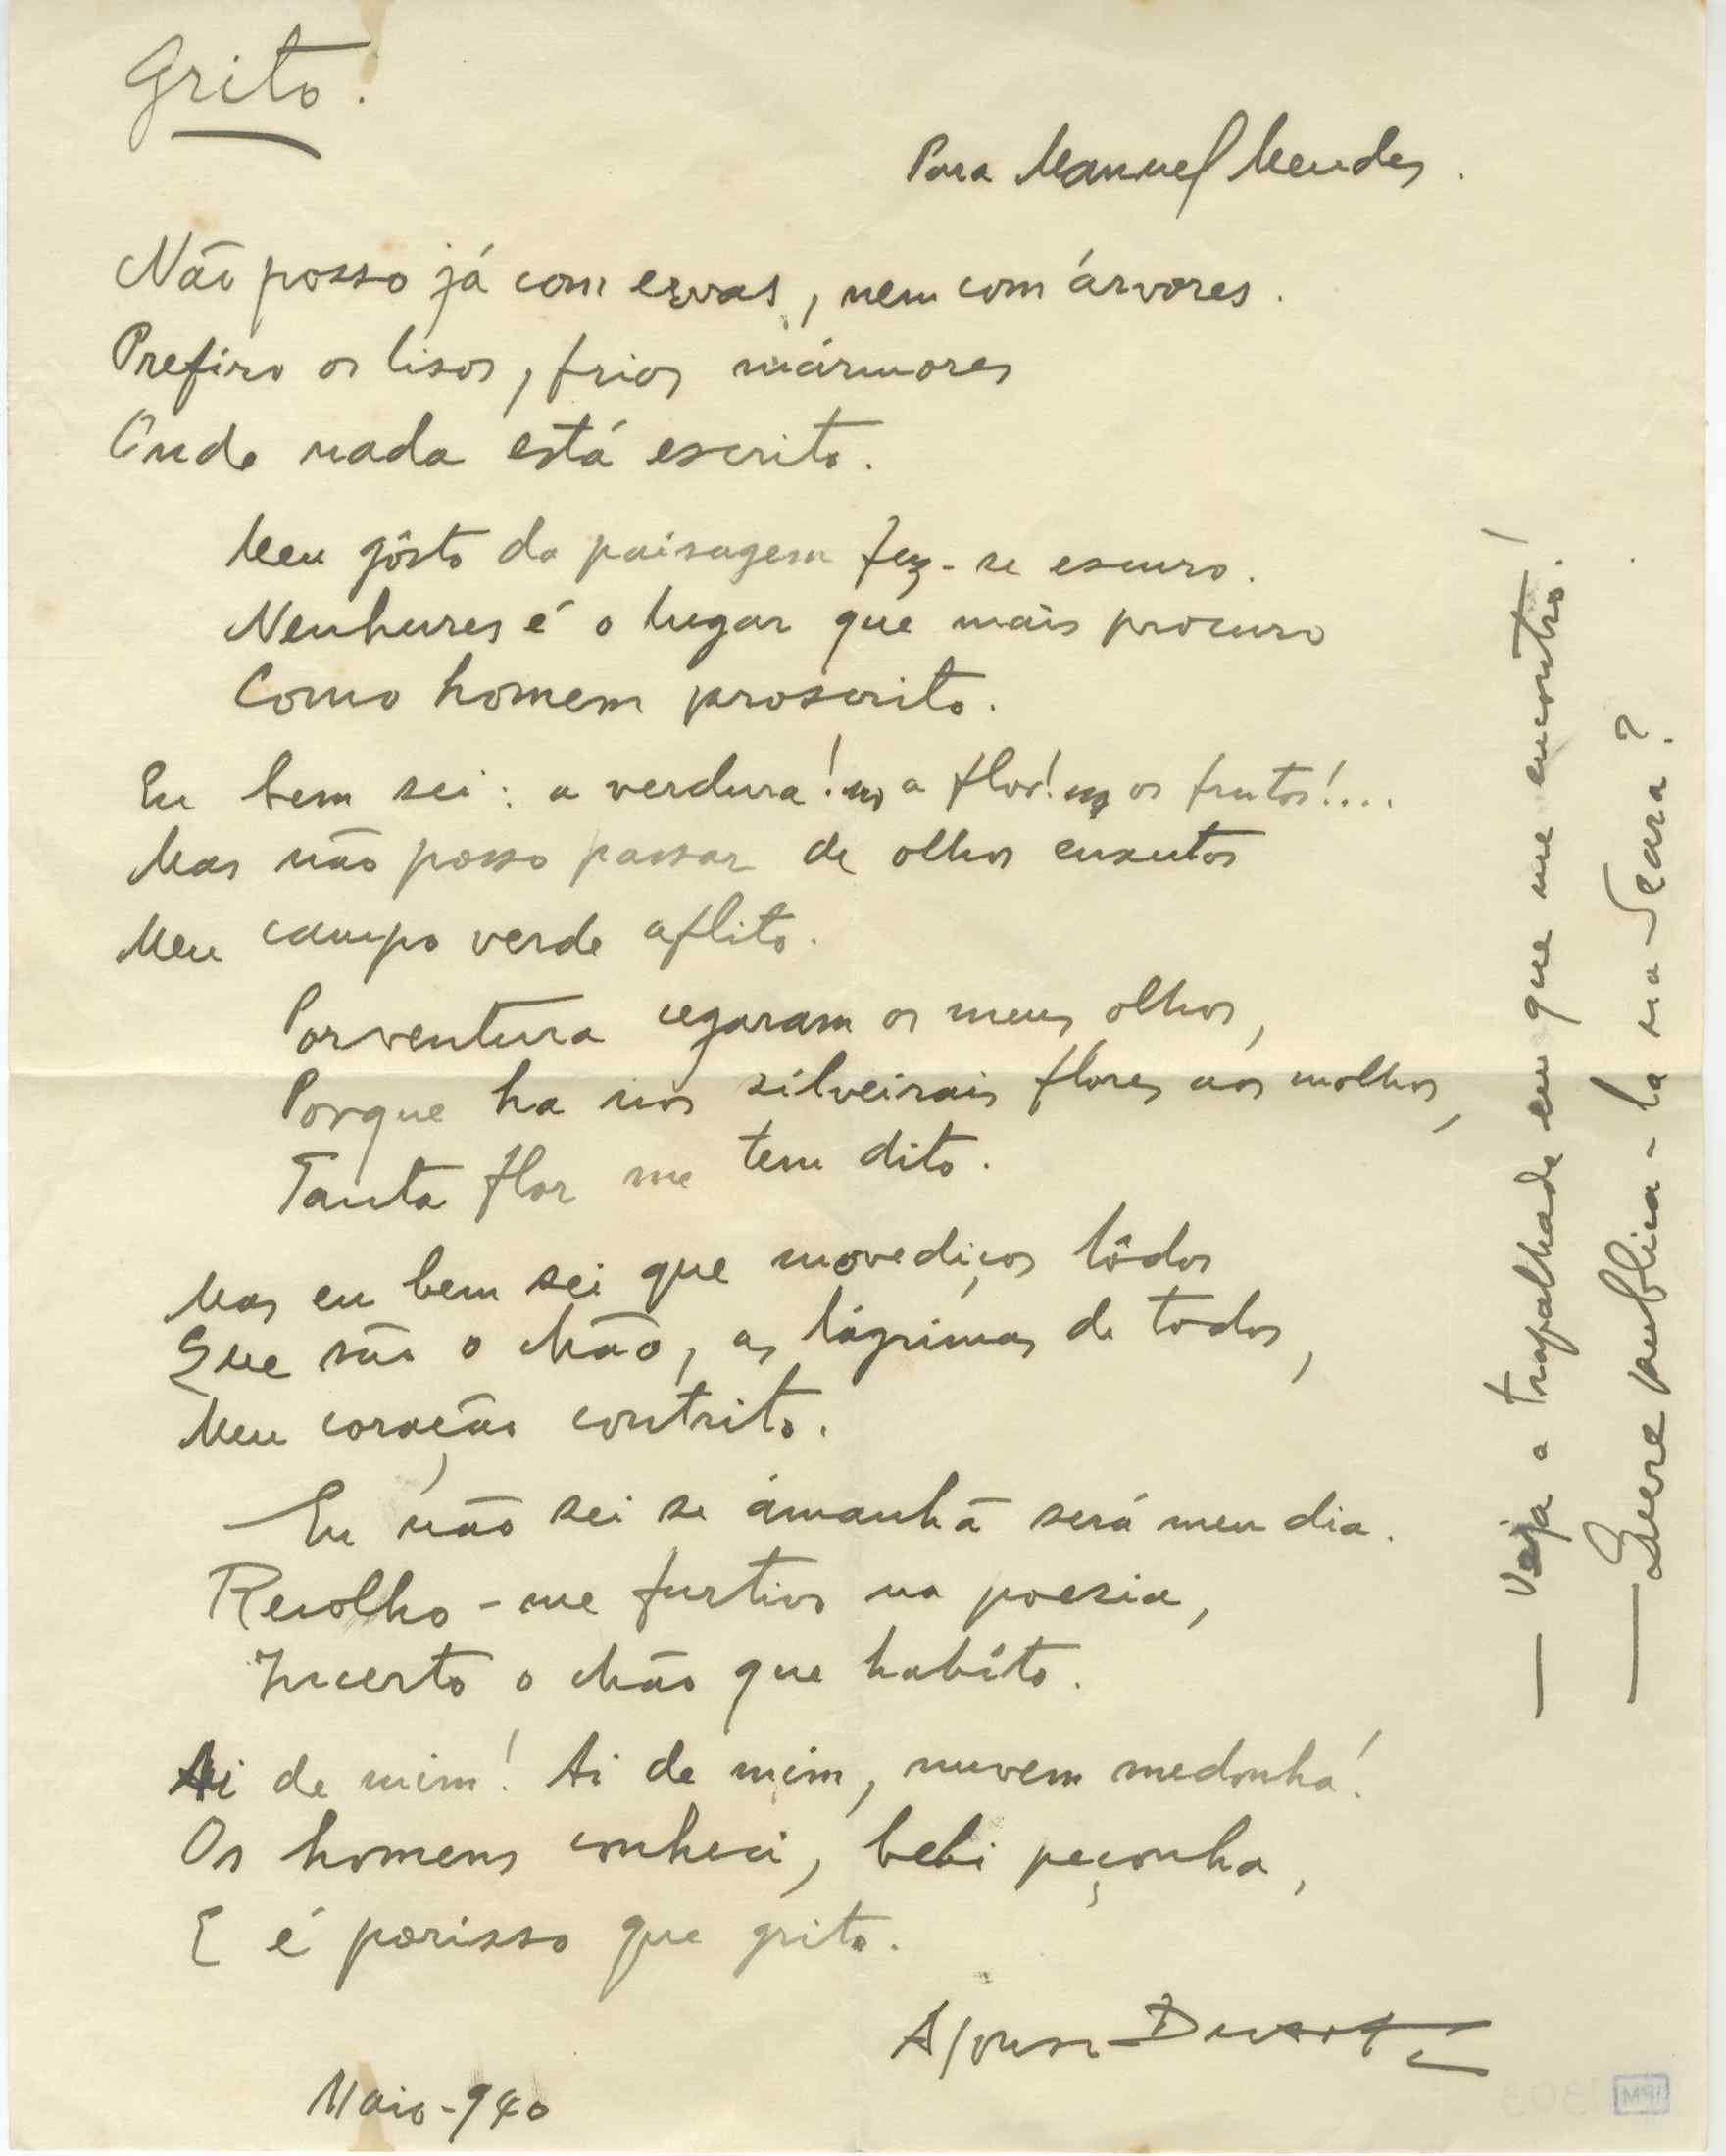 Grito.
Para Manuel Mendes.
Não posso já com ervas, nem com árvores.
Prefiro os lisos, frios mármores
Onde nada está escrito.
Meu gôsto da paisagem fez-se escuro.
Nenhures é o lugar que mais procuro
Como homem proscrito.
Eu bem sei: a verdura! a flor! os frutos!....
Mas não posso passar de olhos enxutos
Meu campo verde aflito.
Porventura cegaram os meus olhos,
Porque ha nos silveirais flores aos molhos,
Tanta flor me tem dito.
Mas eu bem sei que movediços lôdos
Que são o chão, as lágrimas de todos,
Meu coração contrito.
Eu não sei se àmanhã será meu dia.
Recolho-me furtivo na poesia,
Incerto o chão que habito.
Ai de mim! Ai de mim, nuvem medonha!
Os homens conheci, bebi peçonha,
E é porisso que grito.
Afonso Duarte
Maio-940
— Veja a trapalhada em que me encontro!
— Quere publica-la na Seara?
IPM